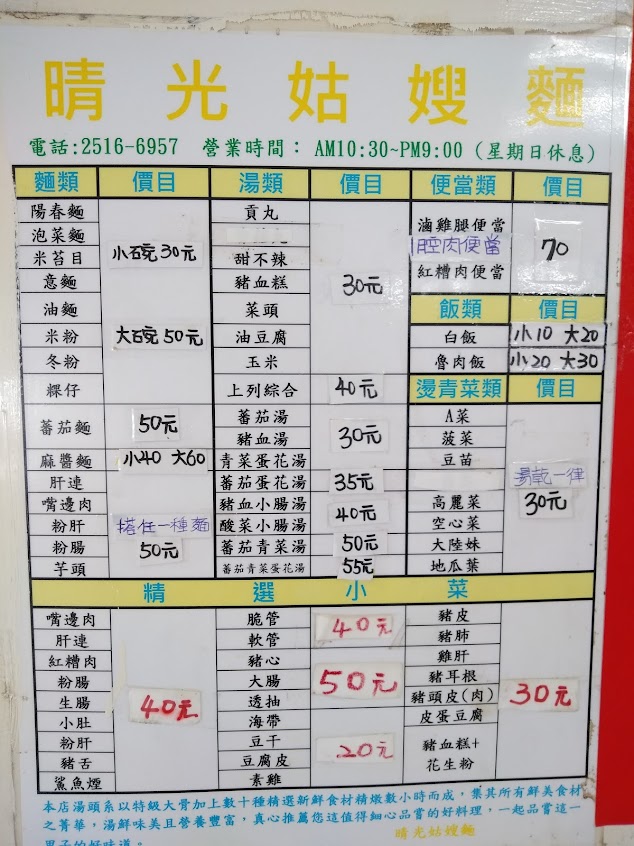 晴光姑嫂麵
電話:2516-6957 營業時間： AM10:30~PM9:00 (星期日休息)
麵類 價目 湯類 價目 便當類 價目
陽春麵
泡菜麵
米苔目
意麵
油麵
米粉
冬粉
粿仔
小碗30元
大碗50元
蕃茄麵 50元
麻醬麵 小40 大60
肝連
嘴邊肉
粉肝
粉腸
芋頭
搭任一種麵
50元
貢丸
甜不辣
豬血糕
菜頭
油豆腐
玉米
30元
上列綜合 40元
蕃茄湯
豬血湯
青菜蛋花湯
30元
蕃茄蛋花湯 35元
豬血小腸湯
酸菜小腸湯
40元
蕃茄青菜湯 50元
蕃茄青菜蛋花湯 55元
滷雞腿便當
腔肉便當
紅糟肉便當
70
飯類 價目
白飯 小10 大20
魯肉飯 小20 大30
燙青菜類 價目
A菜
菠菜
豆苗
高麗菜
空心菜
大陸妹
地瓜葉
湯乾一律
30元
精選小菜
嘴邊肉
肝連
紅糟肉
粉腸
生腸
小肚
粉肝
豬舌
鯊魚煙
40元
脆管
軟管
40元
豬心
大腸
透抽
50元
海帶
豆干
豆腐皮
素雞
20元
豬皮
豬肺
雞肝
豬耳根
豬頭皮(肉)
皮蛋豆腐
豬血糕+
花生粉
30元
本店湯頭系以特級大骨加上數十種精選新鮮食材精燉數小時而成，集其所有鮮美食材
之菁華，湯鮮味美且營養豐富，真心推薦您這值得細心品嘗的好料理，一起品嘗這一
晴光姑嫂麵